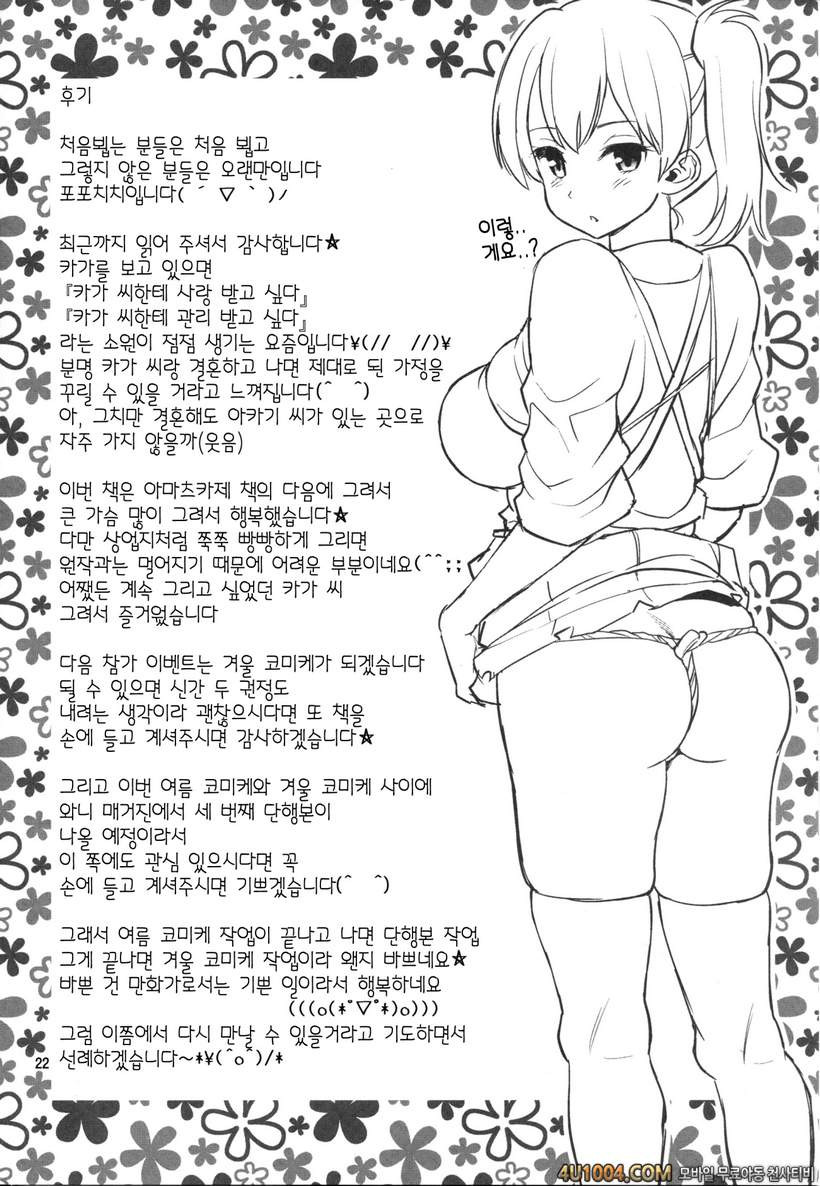 후기
처음뵙는 분들은 처음 뵙고
그렇지 않은 분들은 오랜만입니다
포포치치입니다( ´ ▽ ` )ﾉ
이렇..
게요..?
최근까지 읽어 주셔서 감사합니다☆
카가를 보고 있으면
『카가 씨한테 사랑 받고 싶다』
『카가 씨한테 관리 받고 싶다』
라는 소원이 점점 생기는 요즘입니다¥(// //)¥
분명 카가 씨랑 결혼하고 나면 제대로 된 가정을
꾸릴 수 있을 거라고 느껴집니다(^ ^)
아, 그치만 결혼해도 아카기 씨가 있는 곳으로
자주 가지 않을까(웃음)
이번 책은 아마츠카제 책의 다음에 그려서
큰 가슴 많이 그려서 행복했습니다☆
다만 상업지처럼 쭉쭉 빵빵하게 그리면
원작과는 멀어지기 때문에 어려운 부분이네요(^^;;
어쨌든 계속 그리고 싶었던 카가 씨
그려서 즐거웠습니다
다음 참가 이벤트는 겨울 코미케가 되겠습니다
될 수 있으면 신간 두 권정도
내려는 생각이라 괜찮으시다면 또 책을
손에 들고 계셔주시면 감사하겠습니다☆
그리고 이번 여름 코미케와 겨울 코미케 사이에
와니 매거진에서 세 번째 단행본이
나올 예정이라서
이 쪽에도 관심 있으시다면 꼭
손에 들고 계셔주시면 기쁘겠습니다(^ ^)
그래서 여름 코미케 작업이 끝나고 나면 단행본 작업
그게 끝나면 겨울 코미케 작업이라 왠지 바쁘네요☆
바쁜 건 만화가로서는 기쁜 일이라서 행복하네요
(((o(*ﾟ▽ﾟ*)o)))
그럼 이쯤에서 다시 만날 수 있을거라고 기도하면서
선례하겠습니다~*¥(^o^)/*
22
4U1004.COM 모바일 무료야동 천사티비